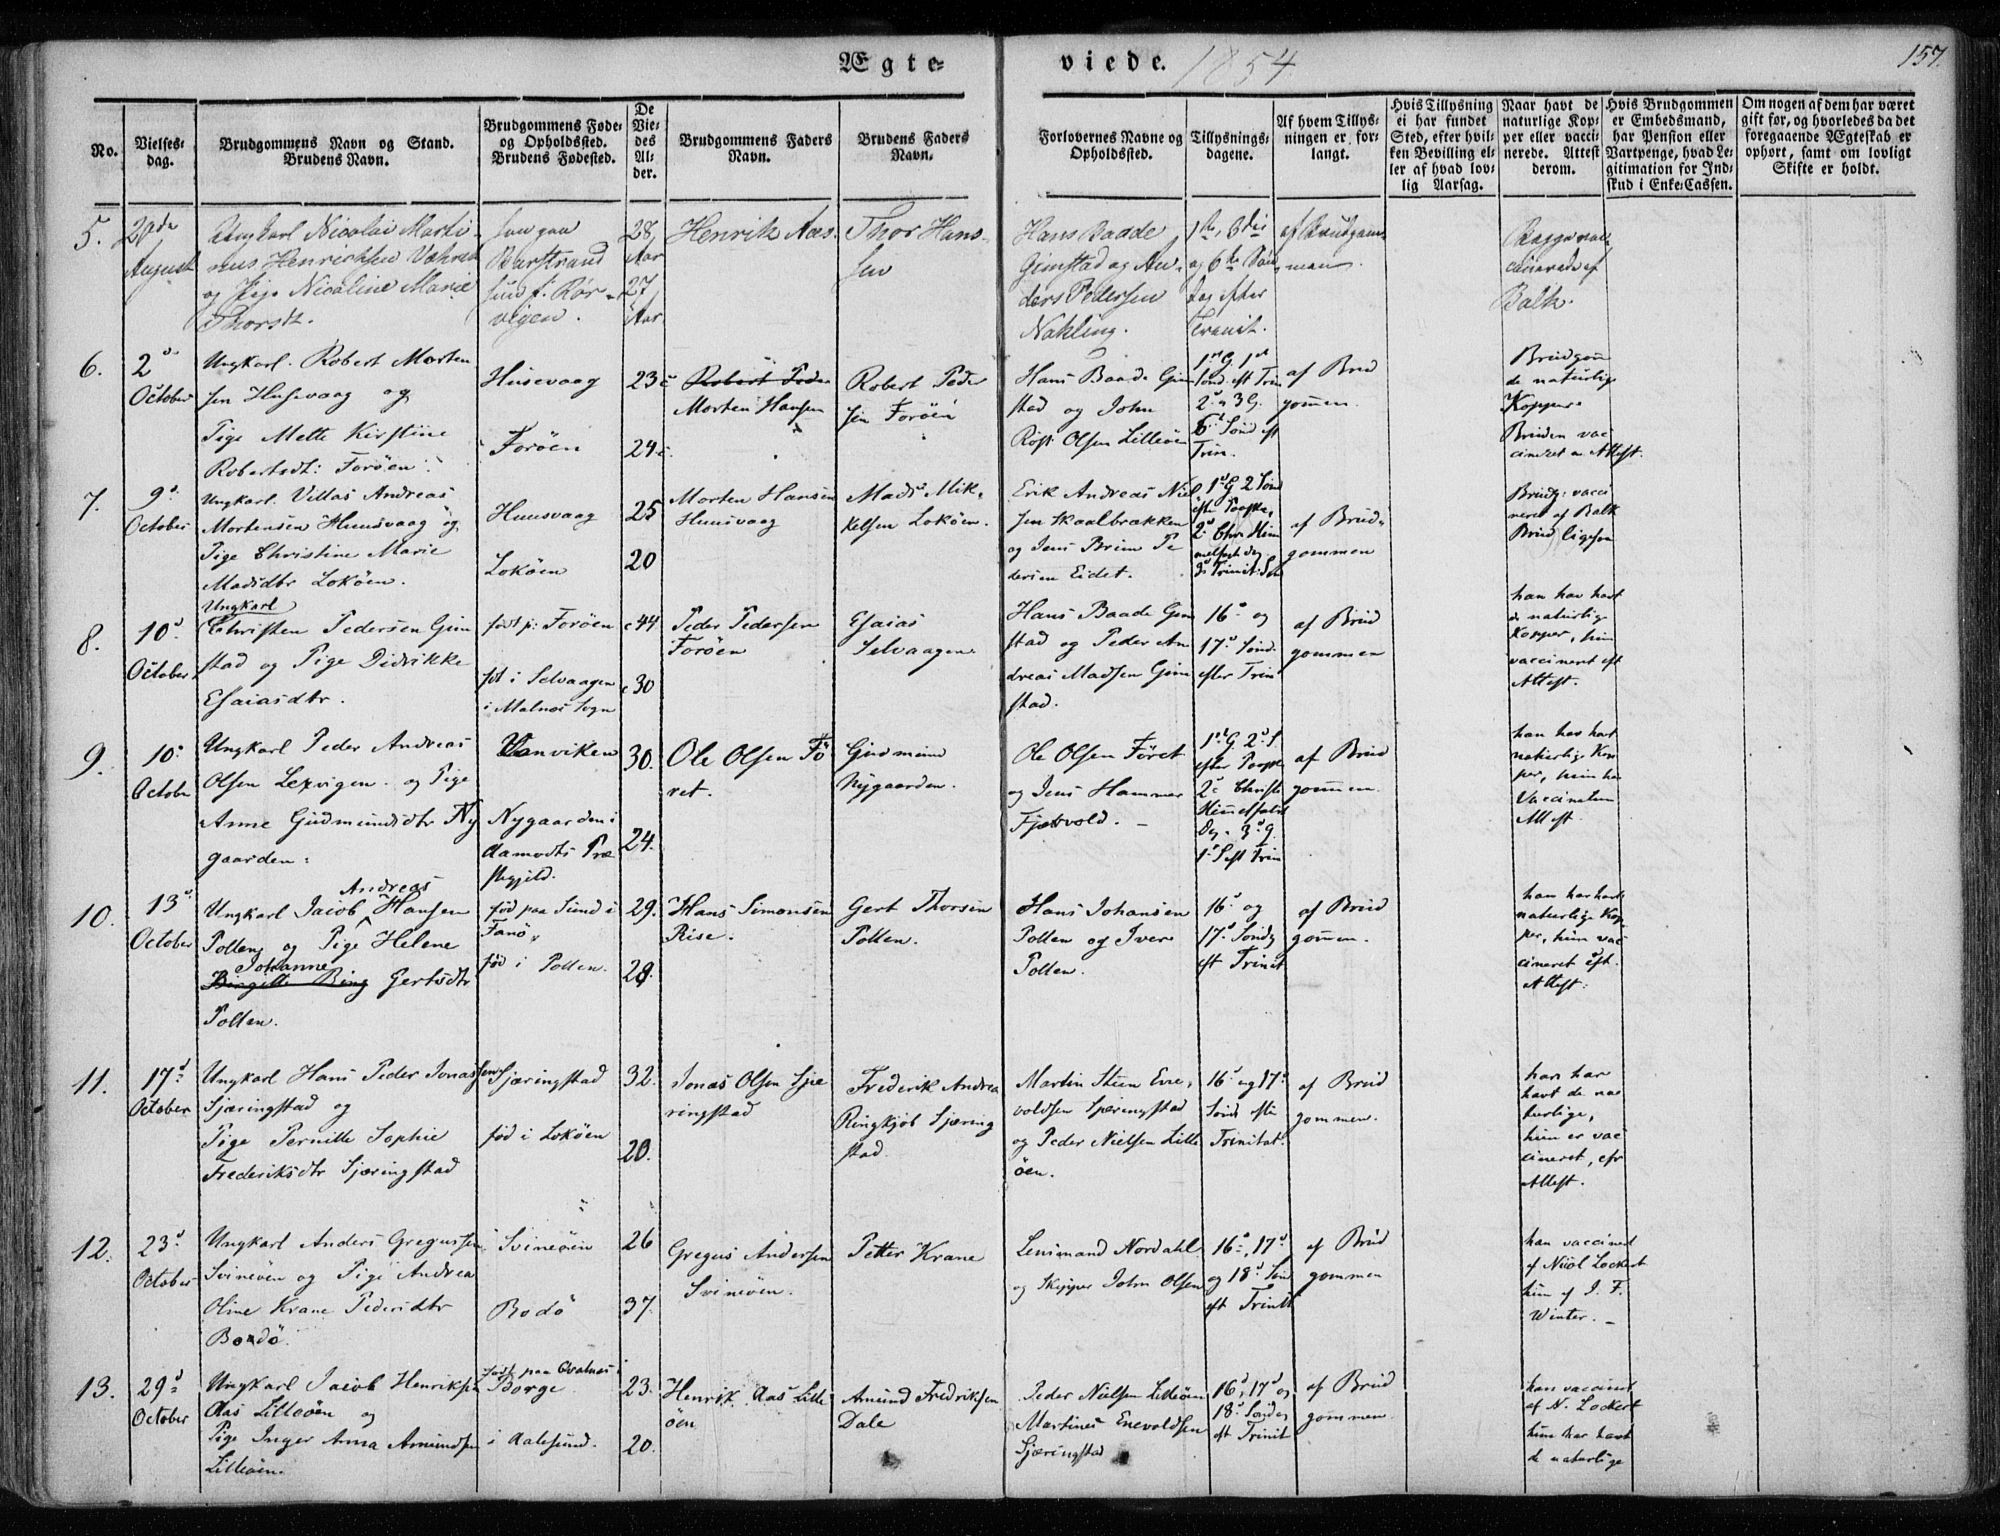 Ægte-
viede. 1854
157.
No.
Vielses-
dag.
Brudgommens Navn og Stand.
Brudens Navn.
Brudgommens Føde-
og Opholdssted.
Brudens Fødested.
De
Vie-
des
Al-
der.
Brudgommens Faders
Navn.
Brudens Faders
Navn.
Forlovernes Navne og
Opholdssted.
Tillysnings-
dagene.
Af hvem Tillys-
ningen er for-
langt.
Hvis Tillysning
ei har fundet
Sted, efter hvil-
ken Bevilling el-
ler af hvad lov-
lig Aarsag.
Naar havt de
naturlige Kop-
per eller vacci-
nerede. Attest
derom.
Hvis Brudgommen
er Embedsmand,
har Pension eller
Vartpenge, hvad Le-
gitimation for Ind-
skud i Enke-Cassen.
Om nogen af dem har været
gift før, og hvorledes da det
foregaaende Ægteskab er
ophørt, samt om lovligt
Skifte er holdt.
5.
August
Ungkarl Nicolai Marti-
nus Henrichsen
og Pige Nicoline Marie
Thorsdt.
28
Aar
27
Aar
Henrik Aas
Thor Han-
sen
Hans Baade
Gimstad og An-
ders Pedersen
Nakling.
og 6te Søn-
dag efter
Trinit.
af Brudgom-
men.
Begge vac-
cinerede af
Balk.
6.
2d
October
Ungkarl. Robert Morten
sen Husevaag og
Pige Mette Kirstine
Robertsdt: Forøen.
Husevaag
Forøen
23
24
Robert Peder
Morten Hansen
Robert Peder
sen Forøen
Hans Baade Gim
stad og John
Røst Olsen Lilleøen
1st G 1st
Sønd. eft Trin
2d 3 G.
6d Sønd eft
Trin.
af Brud
gommen.
Brudgom
de naturlige
Kopper
Bruden vac
cineret Attest.
7.
9d
October
Ungkarl. Villas Andreas
Mortensen Huusvaag og
Pige Christine Marie
Madsdtr Lokøen.
Huusvaag
Lokøen
25
20
Morten Hansen
Huusvaag
Mads Mik-
kelsen Lokøen.
Erik Andreas Niel
sen Skaalbrækken
og Jens Brim Pe
dersen Eidet.
1st G 2 Sønd
efter Paaske,
2d Chr. Him
melfart Dag
3d Trinit.
af Brud-
gommen
Brudg: vacci
neret af Balk
Brud ligesaa
8.
10d
October
Ungkarl
Christen Pedersen Gim
stad og Pige Didrikke
Esaiasdtr.
født p: Forøen
fdt i Selvaagen
i Malnes Sogn
44
30
Peder Pedersen
Forøen
Esaias
Selvaagen.
Hans Baade Gim
stad og Peder An
dreas Madsen Gim
stad.
16d og
17d Sønd.
efter Trin
af Brud
gommen
han har havt
de naturlige
Kopper, hun
vaccineret eft
Attest.
9.
10d
October
Ungkarl Peder Andreas
Olsen Lexvigen. og Pige
Anne Gudmundsdtr Ny
gaarden.
Vanviken
Nygaarden i
Aamodts Præ
stegjeld.
30.
24.
Ole Olsen Fø
ret.
Gudmund
Nygaarden.
Ole Olsen Føret
og Jens Hammer
Fjætvold. —
1st G. 2d S.
efter Paaske
2d Christi
Himmelfarts
Dag. 3d G.
1d S eft Trin
af Brud
gommen.
han har havt
naturlige Kop
per, hun har
Vaccination
Attest.
10.
13d
October
Andreas
Ungkarl Jacob Hansen
Pollen og Pige Helene
Johanne
Birgitte Bing Gertsdtr
Pollen.
fød paa Sund i
Fanø,
fød i Pollen.
29.
28.
Hans Simonsen
Rise.
Gert Thorsen
Pollen.
Hans Johansen
Pollen og Iver
Pollen.
16d og
17d Sønds
eft Trinit
af Brud
gommen.
han har havt
naturlige Kop
per, hun vac
cineret eft.
Attest:
11.
17d
October
Ungkarl Hans Peder Jonassen
Sjæringstad og
Pige Pernille Sophie
Frederiksdtr Sjæringstad
Sjæringstad
fød i Lokøen
32.
20.
Jonas Olsen Sjæ
ringstad
Frederik Andrea
Ringkjøb Sjæring
stad.
Martin Steen Ene-
voldsen Sjæringstad
og Peder Nielsen Lille
øen.
16d og 17d
Sønds efter
Trinitat.
af Brud
gommen.
han har
havt de na
turlige,
hun er vac
cineret, eft
Attest.
12.
23d
October
Ungkarl Anders Gregussen
Svineøen og Pige Andrea
Oline Krane Pedersdtr
Bodø.
Svineøen
Bodø
26
37.
Gregus Andersen
Svineøen.
Petter Krane
Lensmand Nordahl
og Skipper John Olsen
16d, 17d
og 18d Sønd
eft Trinit
af Brud
gommen
han vaccineret
af Niol Lockert
hun af J. F.
Winter. —
13.
29d
October
Ungkarl Jacob Henriksen
Aas Lilleøen og
Pige Inger Anna Amundsen
Lilleøen.
født paa Qvalnes i
Borge
i Aalesund.
23.
20.
Henrik Aas Lille
øen
Amund Fredriksen
Dale
Peder Nielsen Lilleøen
Martines Enevoldsen
Sjæringstad
16d, 17d og
18d Søndag
eft Trinit
af Brud
gommen.
han vaccineret
af N. Lockert
hun har havt
de naturlige